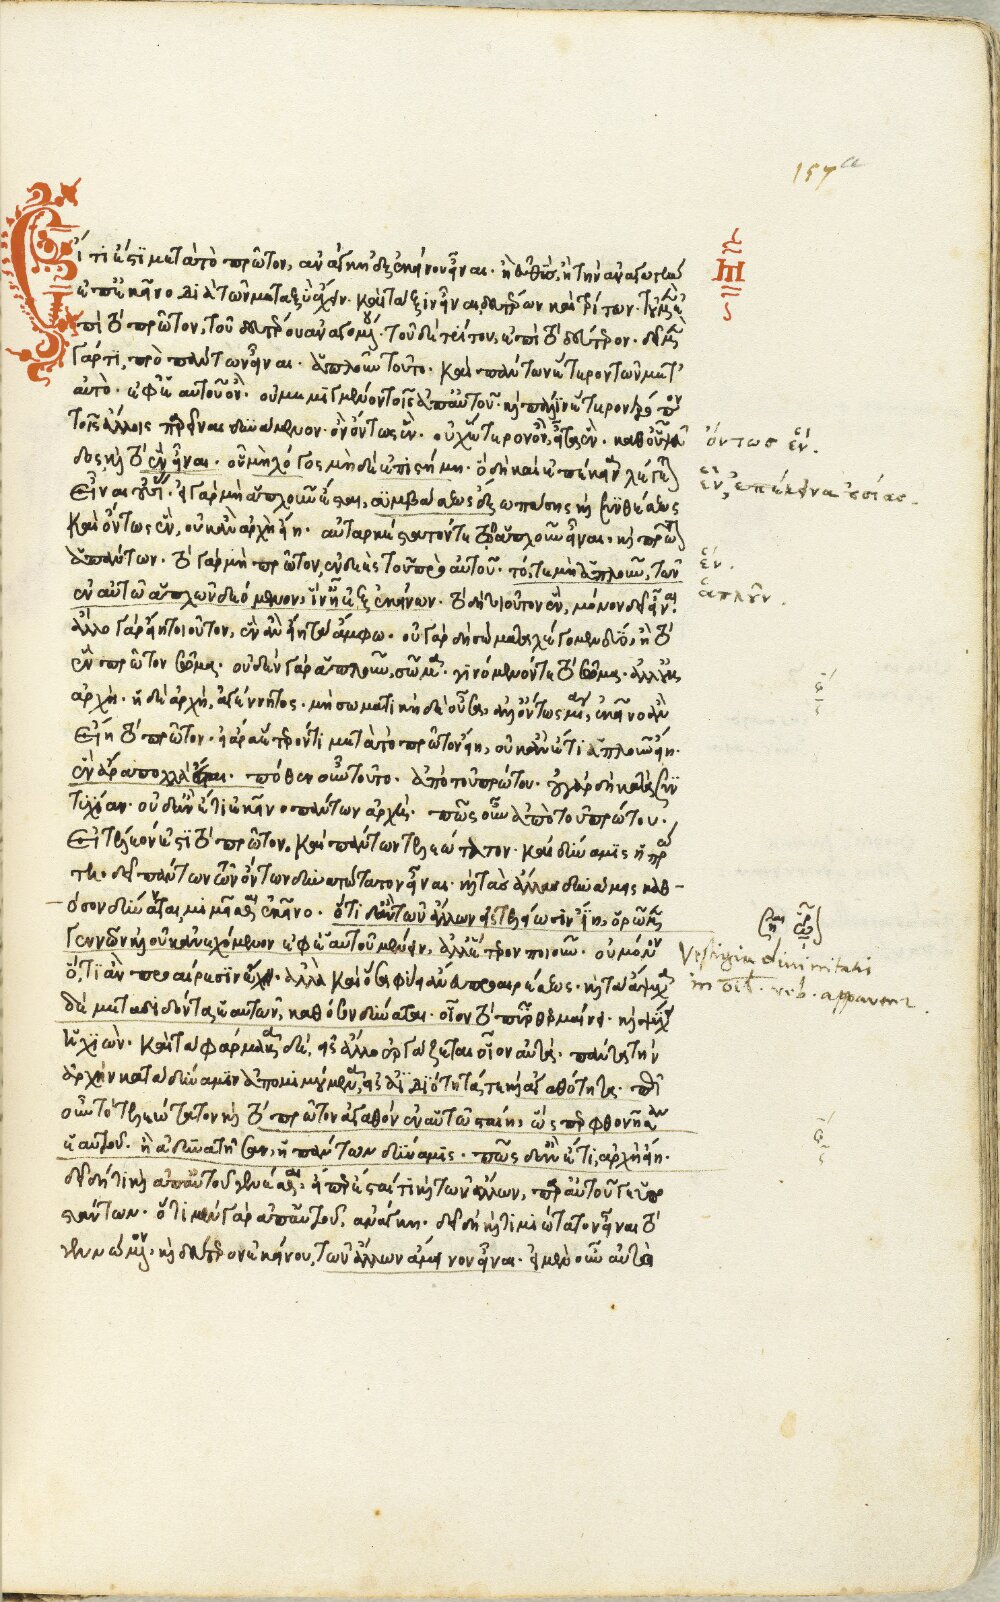 Εἴ τι ἔστι μετὰ τὸ πρῶτον, ἀνάγκη ἐξ ἐκείνου εἶναι· ἢ εὐθὺς, ἢ τὴν ἀναγωγὴν
ἐπ' ἐκεῖνο διὰ τῶν μεταξὺ ἔχειν· καὶ τάξιν εἶναι δευτέρων καὶ τρίτων· τοῦ μὲν ἐ
πὶ τὸ πρῶτον, τοῦ δευτέρου ἀναγομένου· τοῦ δὲ τρίτου, ἐπὶ τὸ δεύτερον· δεῖ μὲν
γάρ τι πρὸ πάντων εἶναι· ἁπλοῦν τοῦτο· καὶ πάντων ἕτερον τῶν μετ'
αὐτὸ· ἐφ' ἑαυτοῦ ὂν· οὐ μεμιγμένον τοῖς ἀπ' αὐτοῦ· καὶ πάλιν ἕτερον τρόπον
τοῖς ἄλλοις παρεῖναι δυνάμενον· ὂν ὄντως ἓν· οὐχ ἕτερον ὂν, εἶτα ἓν· καθ' οὗ ψεῦ
δος καὶ τὸ ἓν εἶναι· οὗ μὴ λόγος μηδὲ ἐπιστήμη· ὃ δὴ καὶ ἐπέκεινα λέγεται
εἶναι οὐσίας· εἰ γὰρ μὴ ἁπλοῦν ἔσται, συμβάσεως ἔξω πάσης καὶ συνθέσεως
καὶ ὄντως ἓν, οὐκ ἂν ἀρχὴ εἴη· αὐταρκέστατόν τε τῷ ἁπλοῦν εἶναι· καὶ πρῶτον
ἁπάντων· τὸ γὰρ μὴ πρῶτον, ἐνδεὲς τοῦ πρὸ αὐτοῦ· τό, τε μὴ ἁπλοῦν, τῶν
ἐν αὐτῷ ἁπλῶν δεόμενον, ἵν' ᾖ ἐξ ἐκείνων· τὸ δὴ τοιοῦτον ἓν, μόνον δεῖ εἶναι·
ἄλλο γὰρ εἴη τοιοῦτον, ἓν ἂν εἴη τὰ ἄμφω· οὐ γὰρ δὴ σώματα λέγομεν δύο, ἢ τὸ
ἓν πρῶτον σῶμα· οὐδὲν γὰρ ἁπλοῦν, σῶμα· γινόμενόν τε τὸ σῶμα· ἀλλ' οὐκ
ἀρχή· ἡ δὲ ἀρχὴ, ἀγέννητος· μὴ σωματικὴ δὲ οὖσα, ἀλλ' ὄντως μία, ἐκεῖνο ἂν
εἴη τὸ πρῶτον· εἰ ἄρα ἕτερόν τι μετὰ τὸ πρῶτον εἴη, οὐκ ἂν ἔτι ἁπλοῦν εἴη·
ἓν ἄρα πολλὰ ἔσται· πόθεν οὖν τοῦτο· ἀπὸ τοῦ πρώτου· οὐ γὰρ δὴ κατὰ συν
τυχίαν· οὐδ' ἂν ἔτι ἐκεῖνο πάντων ἀρχή· πῶς οὖν ἀπὸ τοῦ πρώτου·
εἰ τέλεόν ἐστι τὸ πρῶτον, καὶ πάντων τελεώτατον· καὶ δύναμις ἡ πρώ
τη· δεῖ πάντων τῶν ὄντων δυνατώτατον εἶναι· καὶ τὰς ἄλλας δυνάμεις καθ-
όσον δύνανται, μιμεῖσθαι ἐκεῖνο· ὅ τι δ' ἂν τῶν ἄλλων εἰς τελείωσιν ἴῃ, ὁρῶμεν
γεννῶν καὶ οὐκ ἀνεχόμενον ἐφ' ἑαυτοῦ μένειν, ἀλλ' ἕτερον ποιοῦν· οὐ μόνον
ὅ, τι ἂν προαίρεσιν ἔχῃ· ἀλλὰ καὶ ὅσα φύει ἄνευ προαιρέσεως· καὶ τὰ ἄψυχα
δὲ μεταδιδόντα ἑαυτῶν, καθόσον δύναται· οἷον τὸ πῦρ θερμαίνει· καὶ ψύχει
ἡ χιὼν· καὶ τὰ φάρμακα δὲ, εἰς ἄλλο ἐργάζεται οἷον αὐτά· πάντα τὴν
ἀρχὴν κατὰ δύναμιν ἀπομιμούμενα, εἰς ἀϊδιότητά, τε καὶ ἀγαθότητα· πῶς
οὖν τὸ τελεώτατον καὶ τὸ πρῶτον ἀγαθόν ἐν αὑτῷ σταίη, ὥσπερ φθονῆσαν
ἑαυτοῦ· ἢ ἀδυνατῆσαν, ἡ πάντων δύναμις· πῶς δ' ἂν ἔτι, ἀρχὴ εἴη·
δεῖ δή τι καὶ ἀπ' αὐτοῦ γενέσθαι· εἴπερ ἔσται τι καὶ τῶν ἄλλων, παρ' αὐτοῦ γε ὑπο
στάντων· ὅτι μὲν γὰρ ἀπ' αὐτοῦ, ἀνάγκη· δεῖ δὴ καὶ τιμιώτατον εἶναι τὸ
γεννώμενον· καὶ δεύτερον ἐκείνου, τῶν ἄλλων ἄμεινον εἶναι· εἰ μὲν οὖν αὐτὸ
157 a
ὄντωσ ἕν.
ἕν, ἐπέκεινα οὐσίας.
ἕν.
ἁπλοῦν.
Vestigia diuinitatis
in oib. reb. apparent.